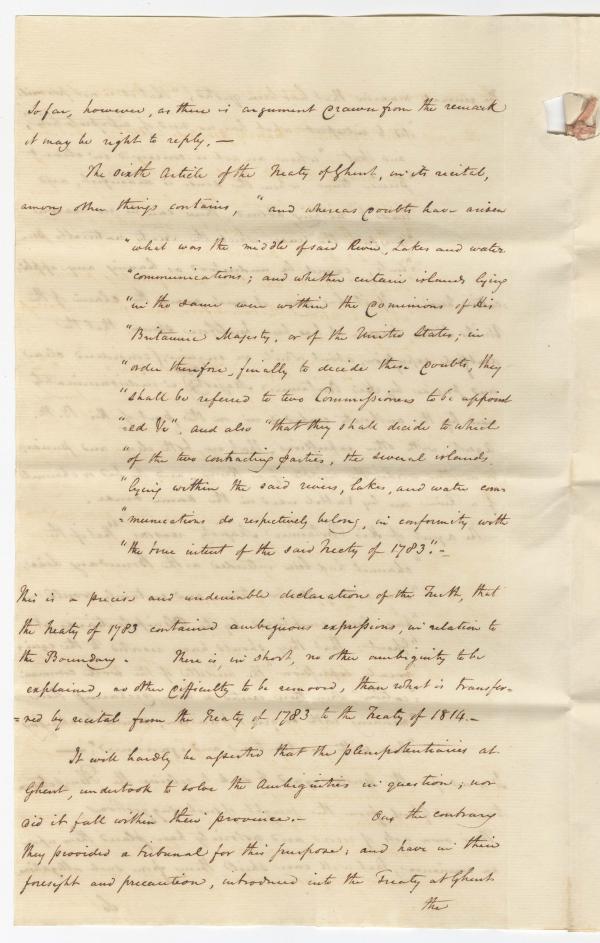 So far, however, as there is argument drawn from the remark
it may be right to reply. —
The sixth Article of the Treaty of Ghent, in its recital,
among other things contains, "and whereas doubts have arisen
"what was the middle of said River, Lakes and water
"communications; and whether certain islands lying
"in the same were within the Dominions of His
"Britannic Majesty, or of the United States; in
"order therefore, finally to decide these doubts, they
"shall be referred to two Commissioners to be appoint
"=ed &c", and also "that they shall decide to which
"of the two contracting parties, the several islands
"lying within the said rivers, lakes, and water com
"=munications do respectively belong, in conformity with
"the true intent of the said Treaty of 1783." —
This is a precise and undeniable declaration of the Truth, that
the Treaty of 1783 contained ambiguous expressions, in relation to
the Boundary. There is, in short, no other ambiguity to be
explained, no other difficulty to be removed, than what is transfer=
=red by recital from the Treaty of 1783 to the Treaty of 1814. —
It will hardly be asserted that the plenipotentiaries at
Ghent, undertook to solve the Ambiguities in question; nor
did it fall within their province. — On the contrary
they provided a tribunal for this purpose; and have in their
foresight and precaution, introduced into the Treaty at Ghent
the